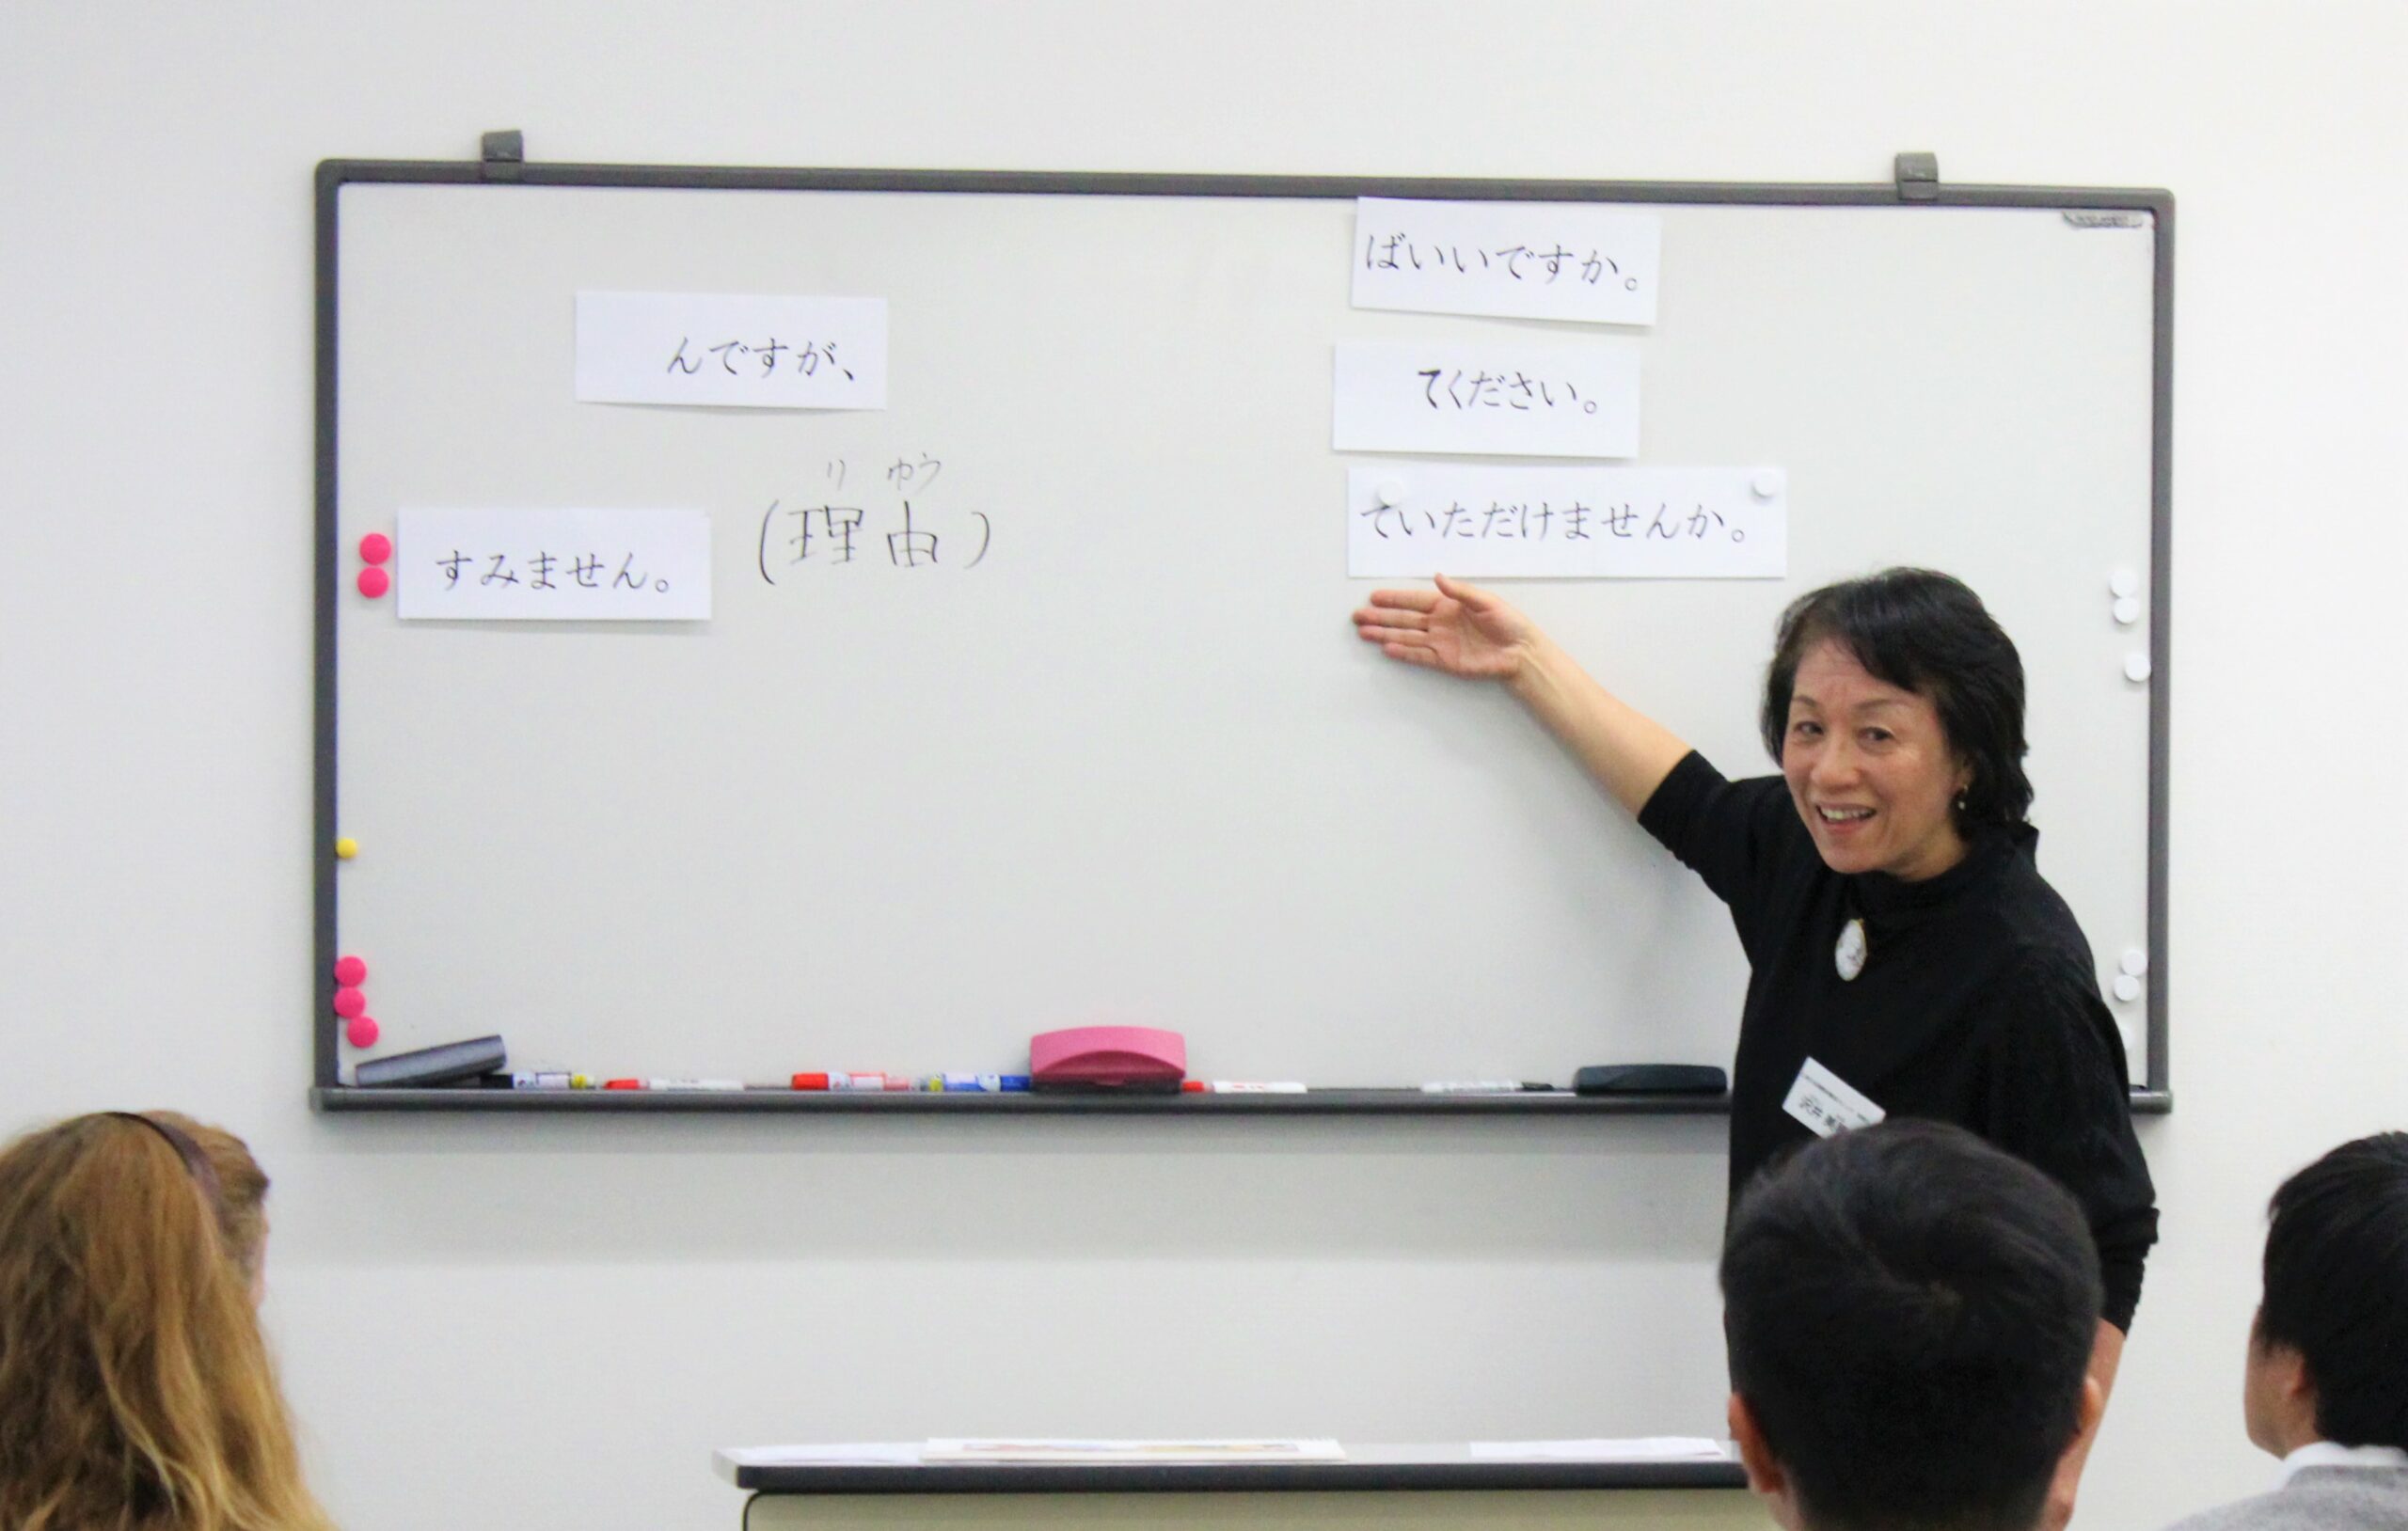 んですが、
りゆう
(理由)
すみません。
ばいいですか。
てください。
ていただけませんか。
沢井